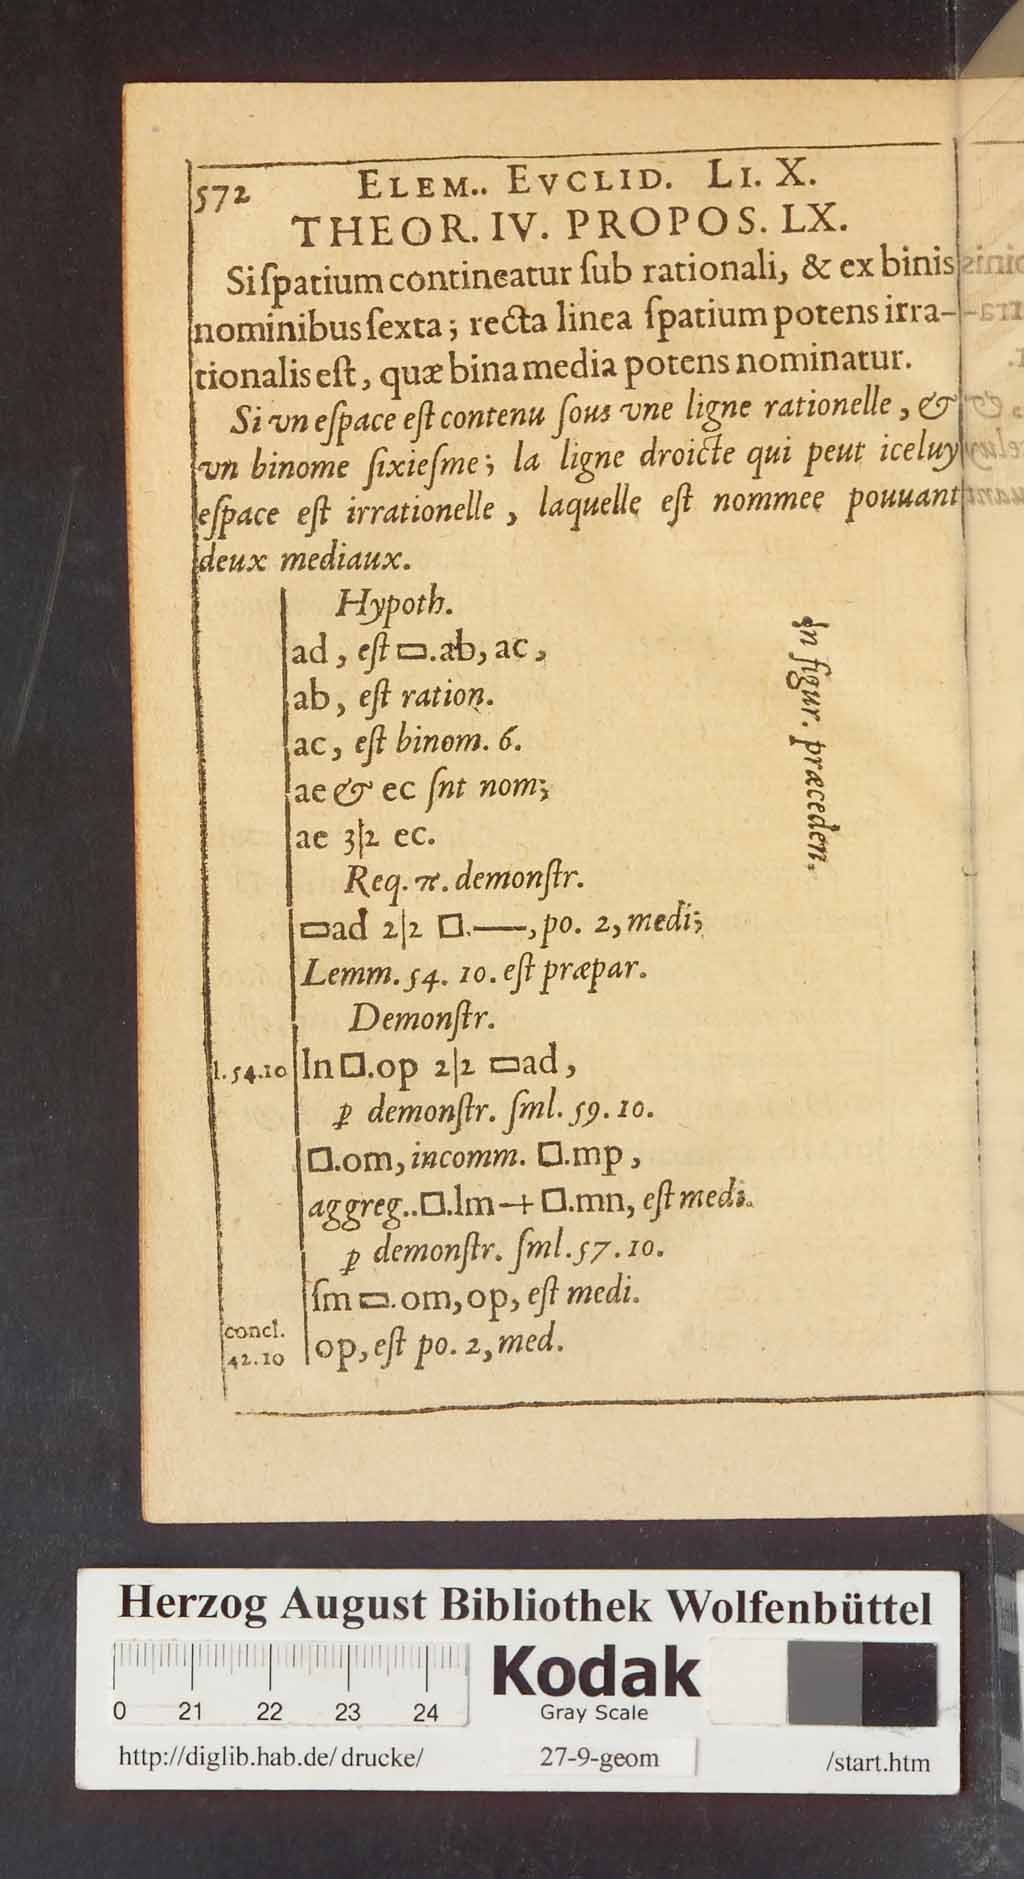 572 ELEM.. EVCLID. LI. X.
THEOR. IV. PROPOS. LX.
Si ſpatium contineatur ſub rationali, & ex binis
nominibus ſexta; recta linea ſpatium potens irra-
tionalis eſt, quæ bina media potens nominatur.
Si vn eſpace eſt contenu ſous vne ligne rationelle, &
vn binome ſixieſme; la ligne droicte qui peut iceluy
eſpace eſt irrationelle, laquelle eſt nommee pouuant
deux mediaux.
Hypoth.
ad, eſt ▭.ab, ac,
ab, eſt ration.
ac, eſt binom. 6.
ae & ec ſnt nom;
ae 3|2 ec.
Req. π. demonſtr.
▭ad 2|2 □.——, po. 2, medi;
Lemm. 54. 10. eſt præpar.
Demonſtr.
l. 54.10 In □.op 2|2 ▭ad,
ꝑ demonſtr. ſml. 59. 10.
□.om, incomm. □.mp,
aggreg.. □.lm + □.mn, eſt medi.
ꝑ demonſtr. ſml. 57. 10.
ſm ▭.om, op, eſt medi.
concl.
42.10 op, eſt po. 2, med.
In figur. præceden.
Herzog August Bibliothek Wolfenbüttel
0 21 22 23 24
Kodak
Gray Scale
http://diglib.hab.de/drucke/ 27-9-geom /start.htm